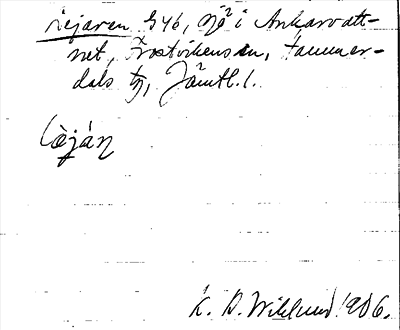 Lejaren G46, ö i Ankarvatt-
net, Frostvikens sn, Hammer-
dals tg, Jämtl. l.
lòȷán
K. B. Wiklund 1906.